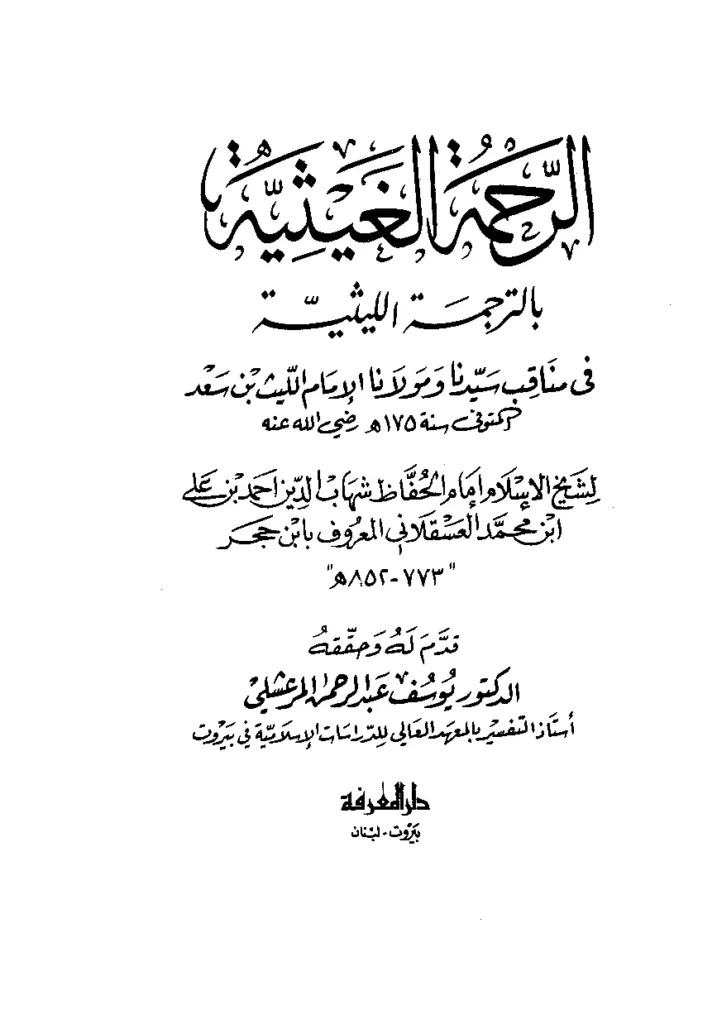 الرَّحمَةُ الغَيثِيَّةُ
بالترجمة الليثيّة
في مناقِب سَيّدِنا وَمَولَانا الإمَام اللّيث بْن سَعْد
المتوفى سنة ١٧٥ هـ رضي الله عنه
لِشَيخ الإسْلَام إمَام الحُفَّاظ شِهَابْ الدِّين احمَد بْن عَلي
ابن محمَّد العَسْقَلاني المعرُوف بابْن حجَر
"٧٧٣-٨٥٢هـ"
قدَّمَ لَهُ وَحقّقهُ
الدكتور يُوسُف عَبد الرحمٰن المرعشلي
أستاذ التفسير بالمعهد العالي للدّراسات الإسلاميّة في بَيْروت
دار المعرفة
بَيْروت - لبْنان